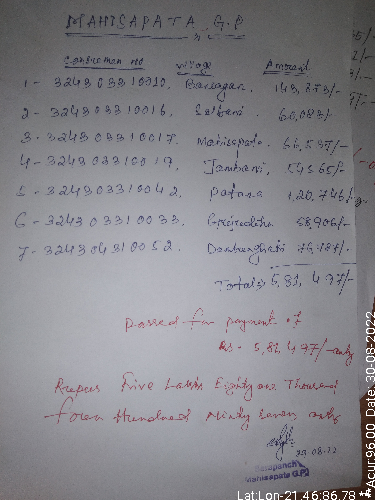 MAHISAPATA G.P
Consumer no village Amount
1 - 324303310010, Bansagar. 143,273/-
2 - 324303310016, Saibani. 60,083/-
3 - 324303310017. Mahisapata. 66,597/-
4 - 324303310019, Jambani,
5 - 324303310042, Patana 1,20,746/-
6 - 324303310033, 58,906/-
7 - 324304310052.
Total 5,81,497/-
Passed for payment of
Rs - 5,81,497/- only
Rupees Five Lakhs Eighty one Thousand
four Hundred Ninty seven only
29.08.22
Sarapanch
Mahisapata G.P.
Lat:Lon-21.46:86.78 **Acur:96.00 Date: 30-08-2022